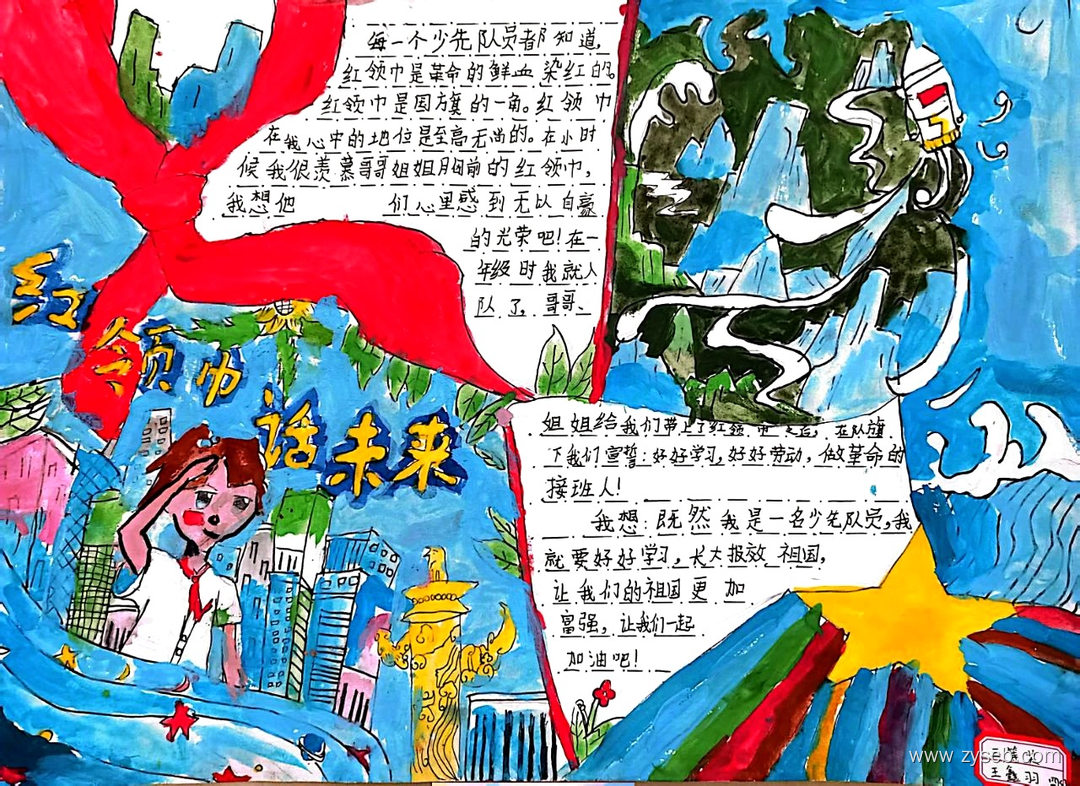 红领巾话未来
每一个少先队员都知道,
红领巾是革命的鲜血染红的。
红领巾是国旗的一角。红领巾
在我心中的地位是至高无尚的。在小时
候我很羡慕哥哥姐姐胸前的红领巾,
我想他们心里感到无以自豪
的光荣吧!在一
年级时我就入
队了,哥哥、
姐姐给我们带上了红领巾,在队旗
下我们宣誓:好好学习,好好劳动,做革命的
接班人!
我想:既然我是一名少先队员,我
就要好好学习,长大报效祖国,
让我们的祖国更加
富强,让我们一起
加油吧!
www.zyseb.com